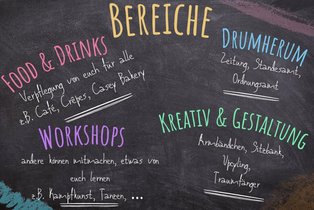 BEREICHE
FOOD & DRINKS
Verpflegung von euch für alle
z.B. Café, Crêpes, Casey Bakery
DRUMHERUM
Zeitung, Standesamt,
Ordnungsamt
WORKSHOPS
andere können mitmachen, etwas von
euch lernen
z.B. Kampfkunst, Tanzen, ...
KREATIV & GESTALTUNG
Armbändchen, Sitzbank,
Upcyling,
Traumfänger